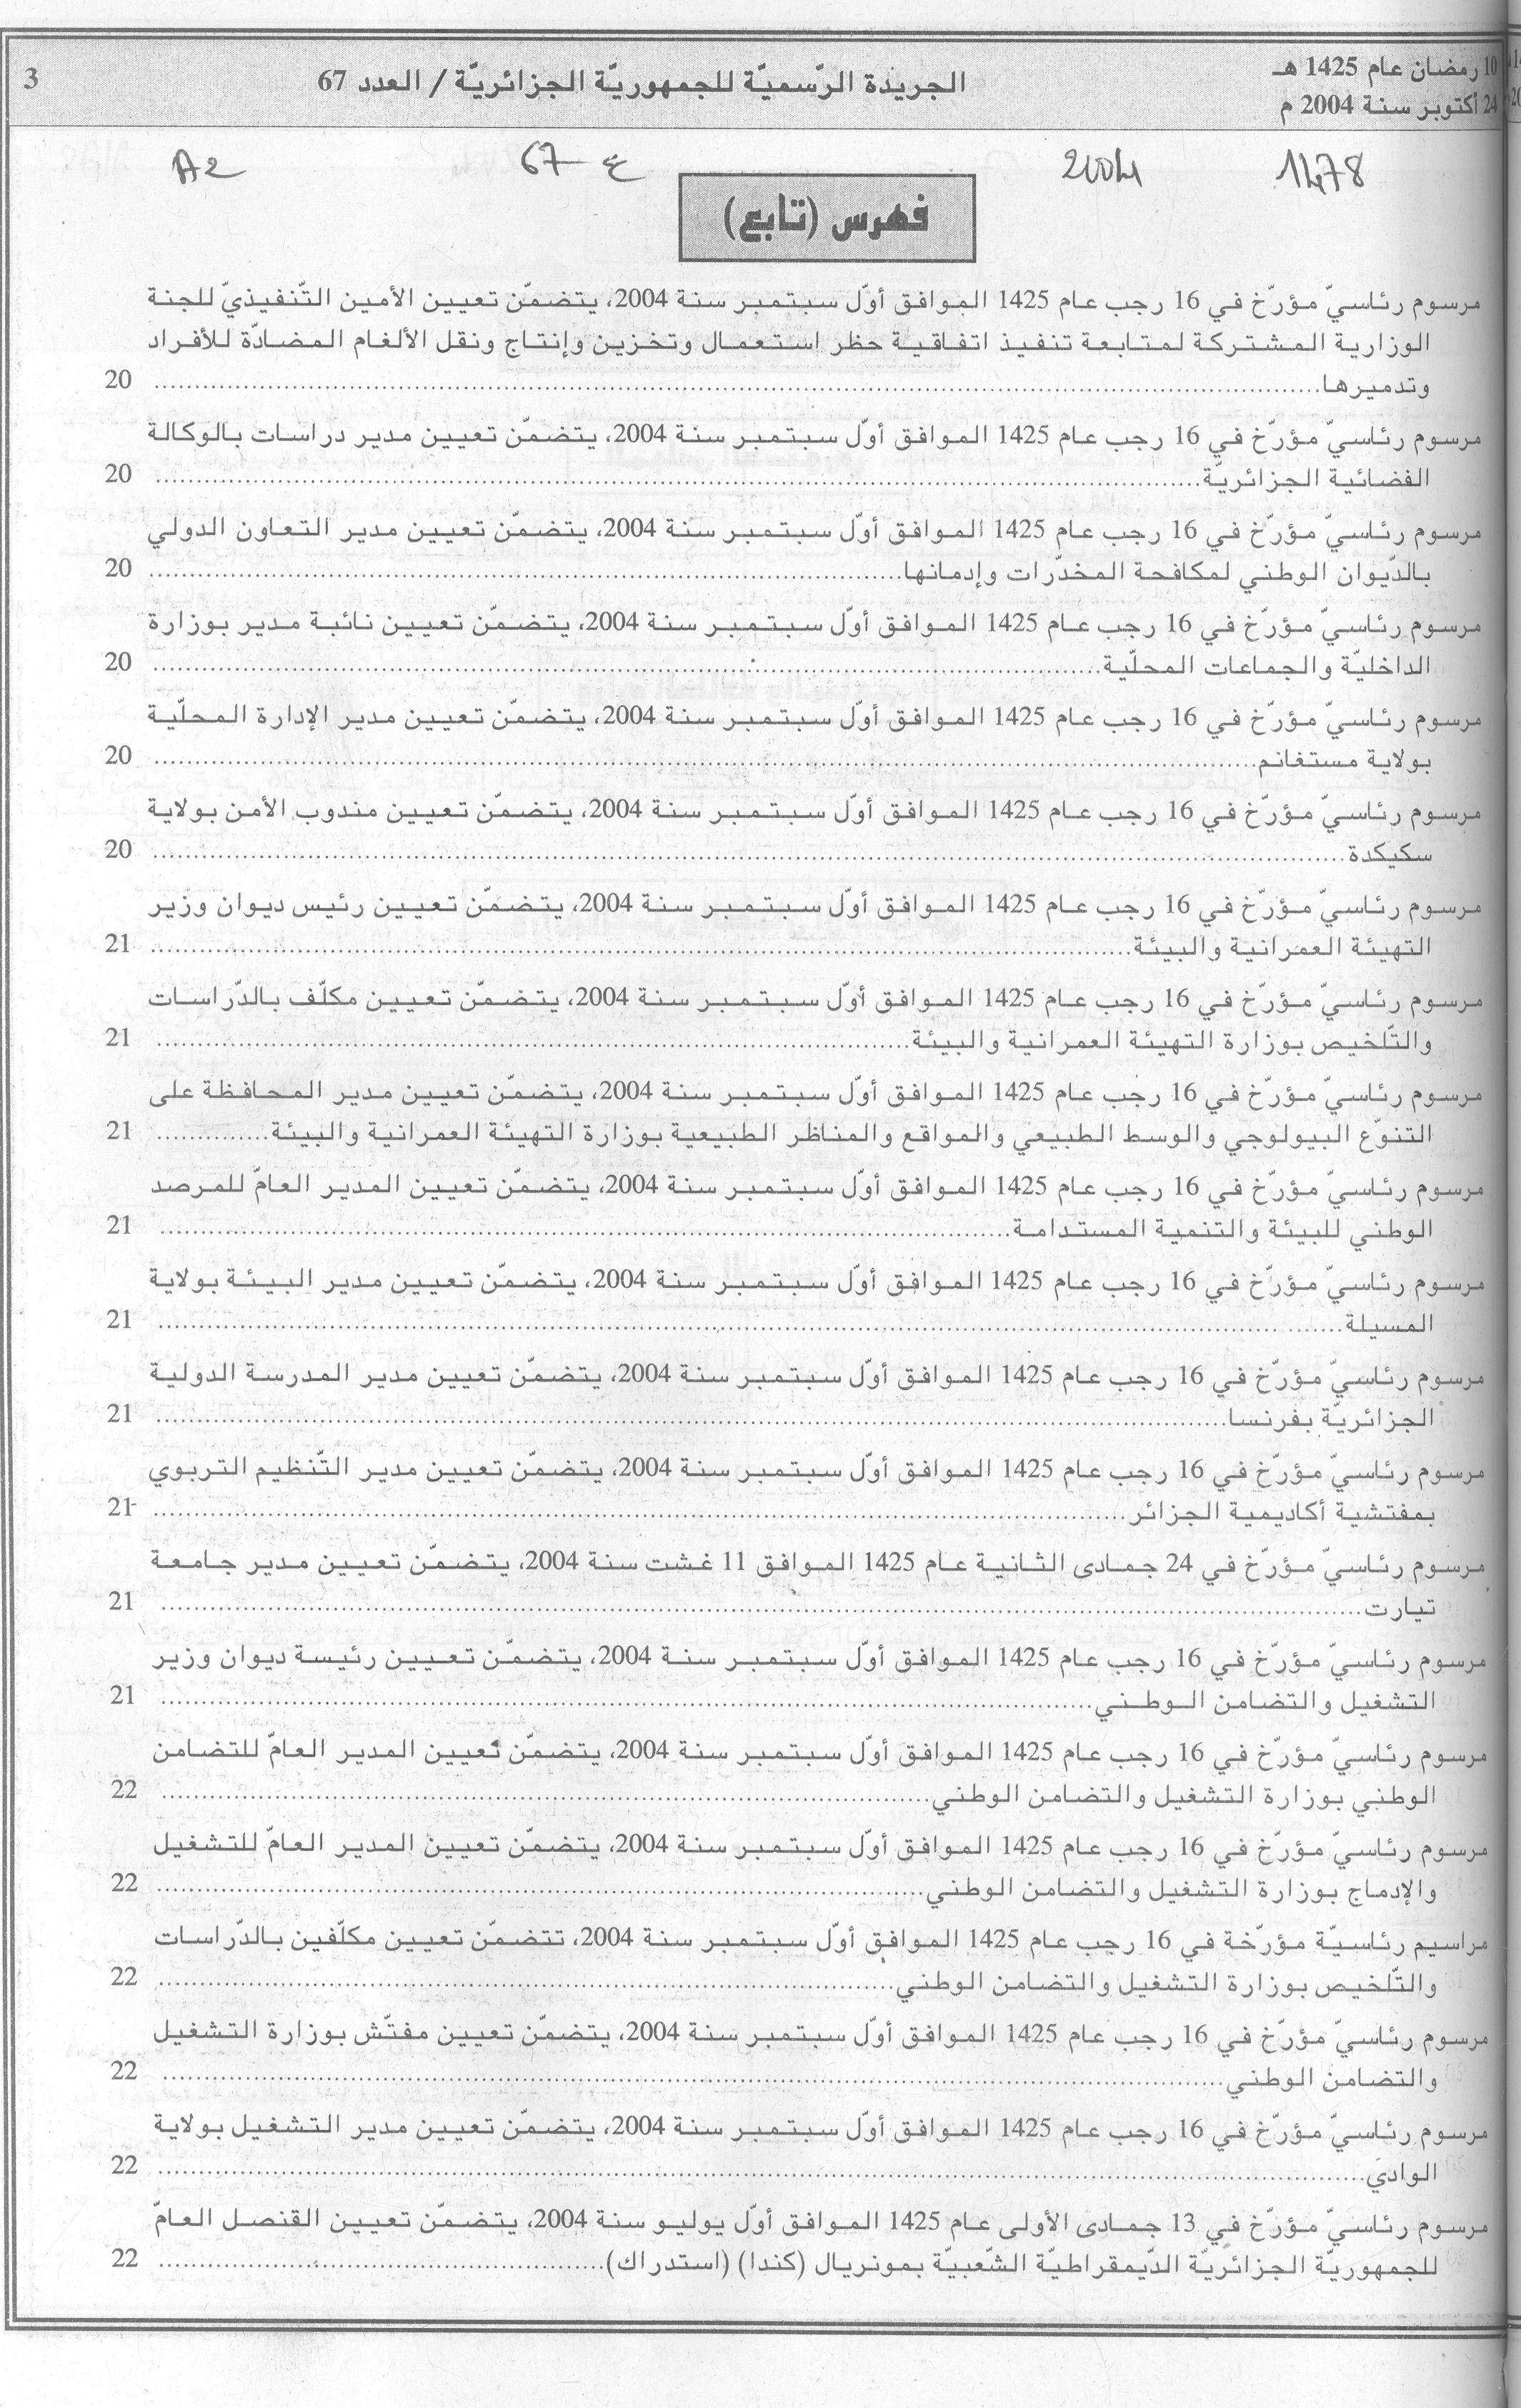 10 رمضان عام 1425 هـ
24 أكتوبر سنة 2004 م
الجريدة الرّسميّة للجمهوريّة الجزائريّة / العدد 67
3
1478
2004
67 ع
A2
فهرس (تابع)
مرسوم رئاسيّ مؤرّخ في 16 رجب عام 1425 الموافق أوّل سبتمبر سنة 2004، يتضمّن تعيين الأمين التّنفيذيّ للجنة
الوزارية المشتركة لمتابعة تنفيذ اتفاقية حظر استعمال وتخزين وإنتاج ونقل الألغام المضادّة للأفراد
وتدميرها.......... 20
مرسوم رئاسيّ مؤرّخ في 16 رجب عام 1425 الموافق أوّل سبتمبر سنة 2004، يتضمّن تعيين مدير دراسات بالوكالة
الفضائية الجزائريّة.......... 20
مرسوم رئاسيّ مؤرّخ في 16 رجب عام 1425 الموافق أوّل سبتمبر سنة 2004، يتضمّن تعيين مدير التعاون الدولي
بالدّيوان الوطني لمكافحة المخدّرات وإدمانها.......... 20
مرسوم رئاسيّ مؤرّخ في 16 رجب عام 1425 الموافق أوّل سبتمبر سنة 2004، يتضمّن تعيين نائبة مدير بوزارة
الداخليّة والجماعات المحلّية.......... 20
مرسوم رئاسيّ مؤرّخ في 16 رجب عام 1425 الموافق أوّل سبتمبر سنة 2004، يتضمّن تعيين مدير الإدارة المحلّية
بولاية مستغانم.......... 20
مرسوم رئاسيّ مؤرّخ في 16 رجب عام 1425 الموافق أوّل سبتمبر سنة 2004، يتضمّن تعيين مندوب الأمن بولاية
سكيكدة.......... 20
مرسوم رئاسيّ مؤرّخ في 16 رجب عام 1425 الموافق أوّل سبتمبر سنة 2004، يتضمّن تعيين رئيس ديوان وزير
التهيئة العمرانية والبيئة.......... 21
مرسوم رئاسيّ مؤرّخ في 16 رجب عام 1425 الموافق أوّل سبتمبر سنة 2004، يتضمّن تعيين مكلّف بالدّراسات
والتّلخيص بوزارة التهيئة العمرانية والبيئة.......... 21
مرسوم رئاسيّ مؤرّخ في 16 رجب عام 1425 الموافق أوّل سبتمبر سنة 2004، يتضمّن تعيين مدير المحافظة على
التنوّع البيولوجي والوسط الطبيعي والمواقع والمناظر الطبيعية بوزارة التهيئة العمرانية والبيئة.......... 21
مرسوم رئاسيّ مؤرّخ في 16 رجب عام 1425 الموافق أوّل سبتمبر سنة 2004، يتضمّن تعيين المدير العامّ للمرصد
الوطني للبيئة والتنمية المستدامة.......... 21
مرسوم رئاسيّ مؤرّخ في 16 رجب عام 1425 الموافق أوّل سبتمبر سنة 2004، يتضمّن تعيين مدير البيئة بولاية
المسيلة.......... 21
مرسوم رئاسيّ مؤرّخ في 16 رجب عام 1425 الموافق أوّل سبتمبر سنة 2004، يتضمّن تعيين مدير المدرسة الدولية
الجزائريّة بفرنسا.......... 21
مرسوم رئاسيّ مؤرّخ في 16 رجب عام 1425 الموافق أوّل سبتمبر سنة 2004، يتضمّن تعيين مدير التّنظيم التربوي
بمفتشية أكاديمية الجزائر.......... 21
مرسوم رئاسيّ مؤرّخ في 24 جمادى الثانية عام 1425 الموافق 11 غشت سنة 2004، يتضمّن تعيين مدير جامعة
تيارت.......... 21
مرسوم رئاسيّ مؤرّخ في 16 رجب عام 1425 الموافق أوّل سبتمبر سنة 2004، يتضمّن تعيين رئيسة ديوان وزير
التشغيل والتضامن الوطني.......... 21
مرسوم رئاسيّ مؤرّخ في 16 رجب عام 1425 الموافق أوّل سبتمبر سنة 2004، يتضمّن تعيين المدير العامّ للتضامن
الوطني بوزارة التشغيل والتضامن الوطني.......... 22
مرسوم رئاسيّ مؤرّخ في 16 رجب عام 1425 الموافق أوّل سبتمبر سنة 2004، يتضمّن تعيين المدير العامّ للتشغيل
والإدماج بوزارة التشغيل والتضامن الوطني.......... 22
مراسيم رئاسيّة مؤرّخة في 16 رجب عام 1425 الموافق أوّل سبتمبر سنة 2004، تتضمّن تعيين مكلّفين بالدّراسات
والتّلخيص بوزارة التشغيل والتضامن الوطني.......... 22
مرسوم رئاسيّ مؤرّخ في 16 رجب عام 1425 الموافق أوّل سبتمبر سنة 2004، يتضمّن تعيين مفتّش بوزارة التشغيل
والتضامن الوطني.......... 22
مرسوم رئاسيّ مؤرّخ في 16 رجب عام 1425 الموافق أوّل سبتمبر سنة 2004، يتضمّن تعيين مدير التشغيل بولاية
الوادي.......... 22
مرسوم رئاسيّ مؤرّخ في 13 جمادى الأولى عام 1425 الموافق أوّل يوليو سنة 2004، يتضمّن تعيين القنصل العامّ
للجمهوريّة الجزائريّة الدّيمقراطيّة الشّعبيّة بمونريال (كندا) (استدراك).......... 22